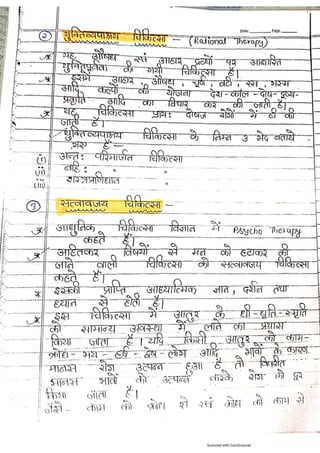 Date Page
② युक्तिव्यपाश्रय चिकित्सा - (Rational Therapy)
यह औषध एवं आहार द्रव्यों पर आधारित
युक्तिपूर्वक की गयी चिकित्सा है।
इसमें आहार, औषध, चूर्ण, वटी, रस, भस्म
आदि कल्पों की योजना देश-काल-दोष-दूष्य-
प्रकृति आदि का विचार कर की जाती है।
यह चिकित्सा प्रायः दोषज रोगों में ही की
जाती है।
युक्तिव्यपाश्रय चिकित्सा के निम्न 3 भेद बताये
गए हैं-
(i) अन्तः परिमार्जन चिकित्सा
(ii) बहिः " "
(iii) शस्त्रप्रणिधान "
③ सत्वावजय चिकित्सा -
आधुनिक चिकित्सा विज्ञान में Psycho Therapy
कहते हैं।
अहितकर विषयों से मन को हटाकर की
जाने वाली चिकित्सा को सत्वावजय चिकित्सा
कहते हैं।
इसकी प्राप्ति आध्यात्मिक ज्ञान, दर्शन तथा
ध्यान से होती है।
इस चिकित्सा में आतुर के धी-धृति-स्मृति
को सामान्य अवस्था में लाने का प्रयास
किया जाता है। यदि किसी आतुर को काम-
क्रोध-भय-हर्ष-द्वेष-लोभ आदि भावों के कारण
मानस रोग उत्पन्न हुआ है तो विपरीत
मानस भावों को उत्पन्न करके रोग को दूर
किया जाता है।
जैसे- काम को क्रोध से एवं क्रोध को काम से
Scanned with CamScanner